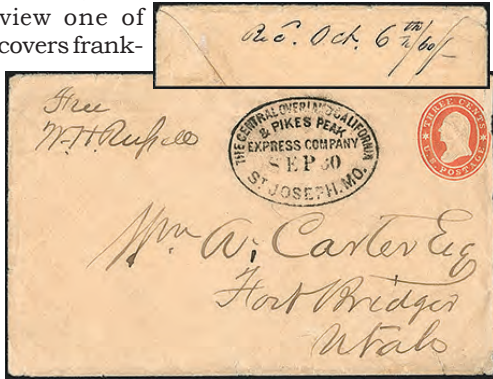 view one of
covers frank-
Rec'd. Oct. 6th/60
Free
W. H. Russell
THE CENTRAL OVERLAND CALIFORNIA
& PIKES PEAK
EXPRESS COMPANY
SEP 30
ST JOSEPH, MO.
THREE CENTS
U.S. POSTAGE
Wm A. Carter Esq
Fort Bridger
Utah